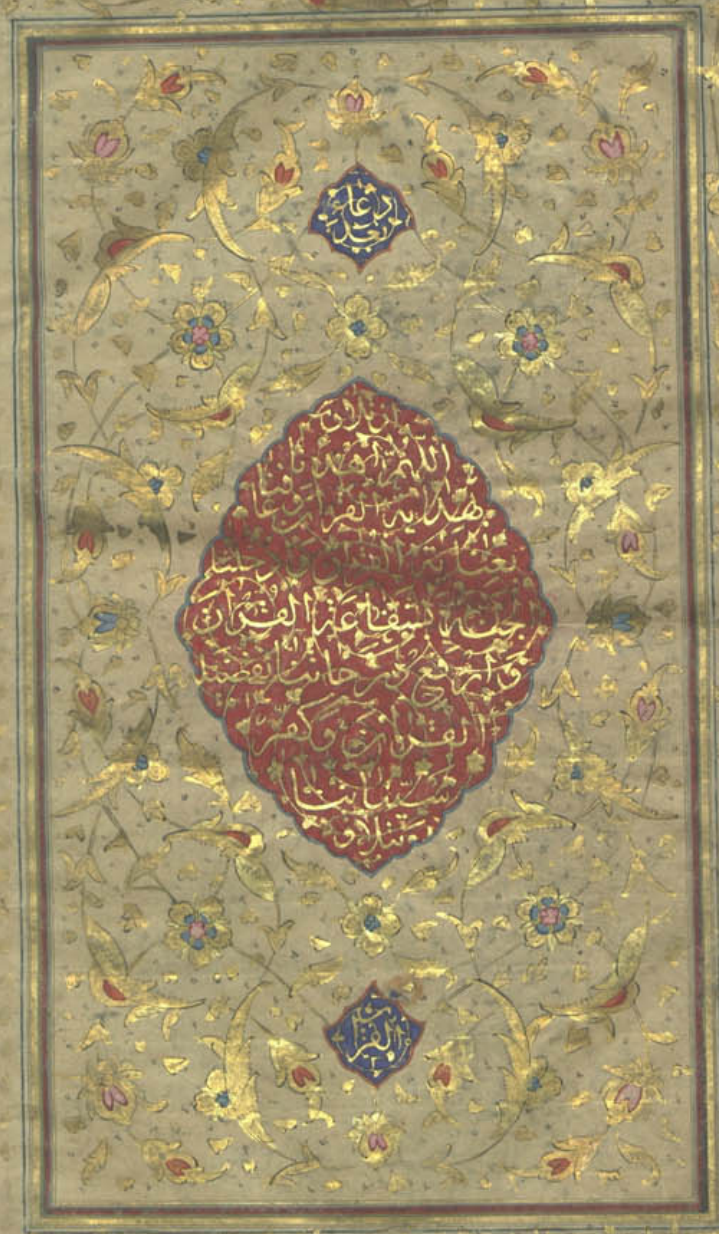 دعاء
بعد
تلاوة
اللهم اهدنا
بهداية القرآن وعافنا
بعناية القرآن وأدخلنا
الجنة بشفاعة القرآن
وارفع درجاتنا بفضيلة
القرآن وكفر
سيئاتنا
بتلاوة
القرآن